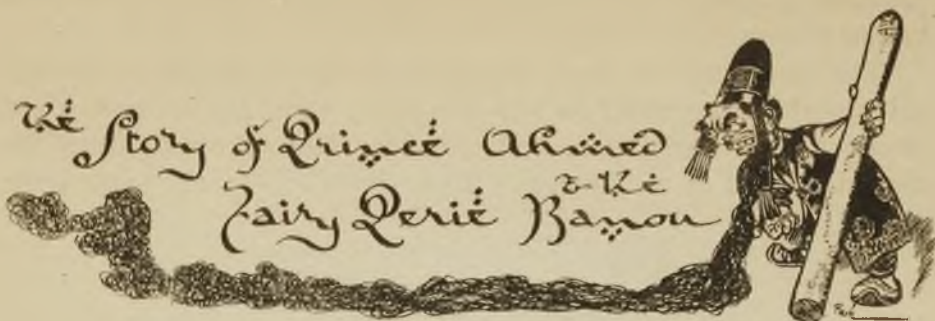 The Story of Prince Ahmed
& The
Fairy Perie Banou